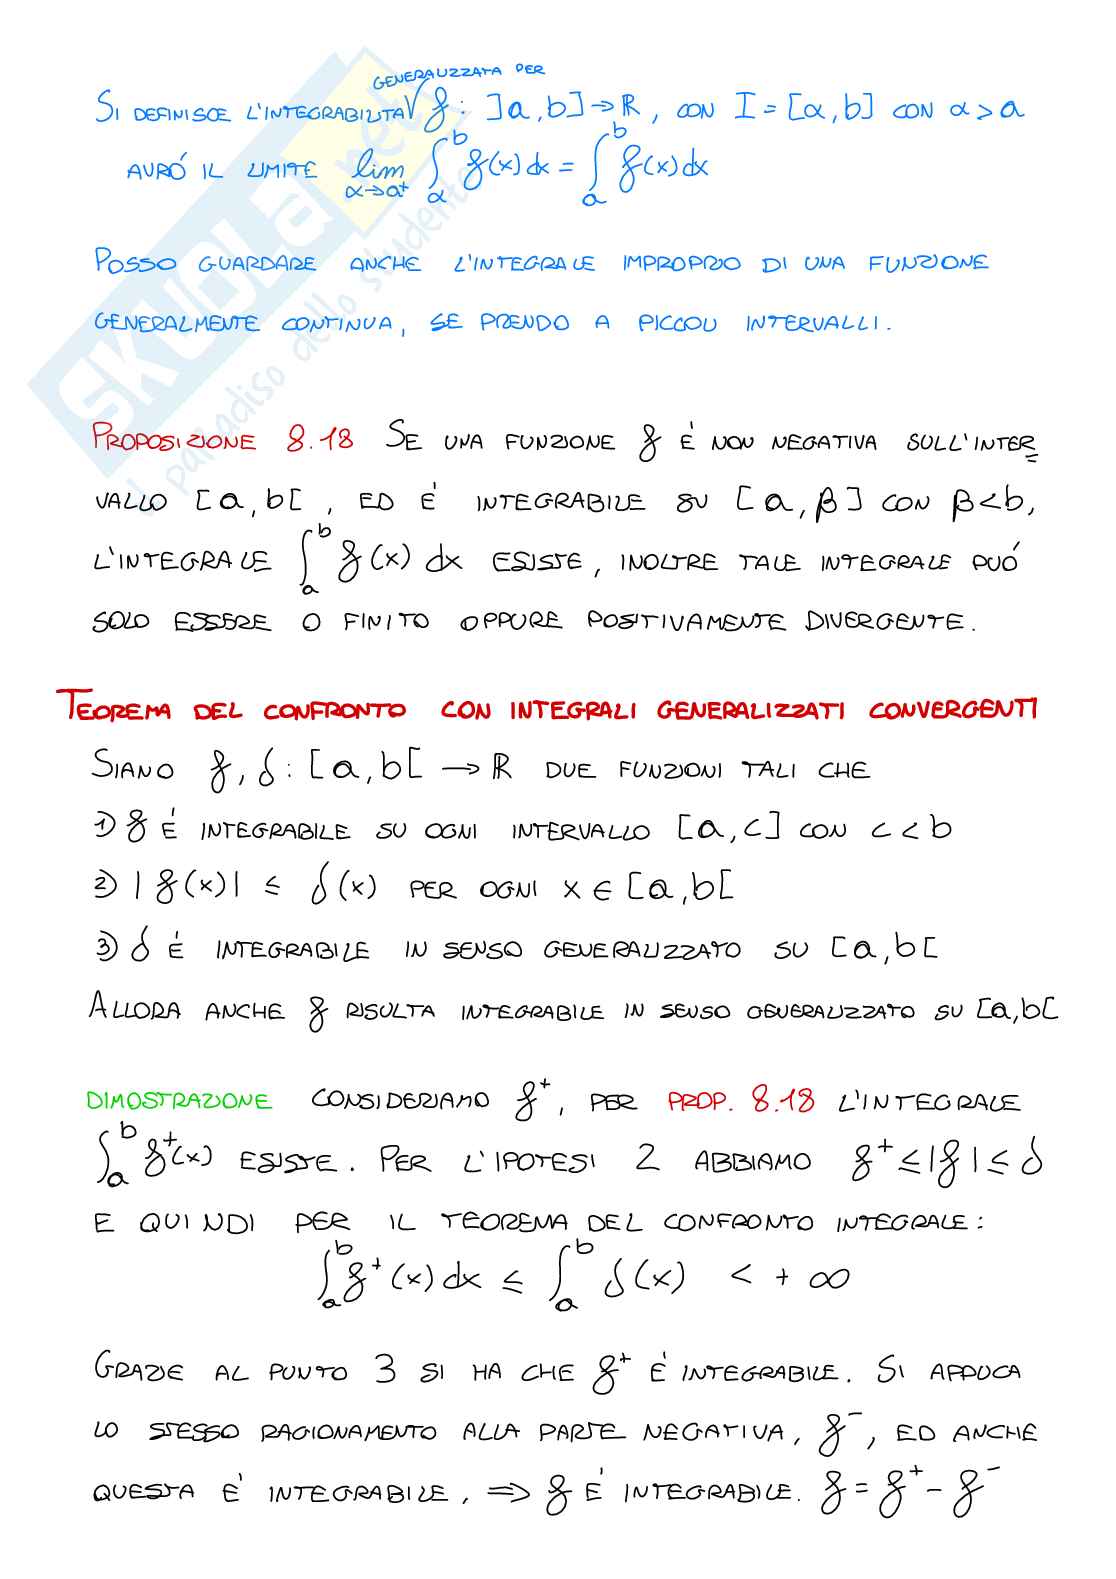 GENERALIZZATA PER
SI DEFINISCE L'INTEGRABILITÀ √ f : ]a,b] → ℝ, CON I = [α,b] CON α > a
AVRÓ IL LIMITE lim α→a⁺ ∫_α^b f(x)dx = ∫_a^b f(x)dx
POSSO GUARDARE ANCHE L'INTEGRALE IMPROPRIO DI UNA FUNZIONE
GENERALMENTE CONTINUA, SE PRENDO A PICCOLI INTERVALLI.
PROPOSIZIONE 8.18 SE UNA FUNZIONE f É NON NEGATIVA SULL'INTER
VALLO [a,b[ , ED É INTEGRABILE SU [a,β] CON β<b,
L'INTEGRALE ∫_a^b f(x) dx ESISTE, INOLTRE TALE INTEGRALE PUÓ
SOLO ESSERE O FINITO OPPURE POSITIVAMENTE DIVERGENTE.
TEOREMA DEL CONFRONTO CON INTEGRALI GENERALIZZATI CONVERGENTI
SIANO f, δ : [a,b[ → ℝ DUE FUNZIONI TALI CHE
1) f É INTEGRABILE SU OGNI INTERVALLO [a,c] CON c < b
2) |f(x)| ≤ δ(x) PER OGNI x ∈ [a,b[
3) δ É INTEGRABILE IN SENSO GENERALIZZATO SU [a,b[
ALLORA ANCHE f RISULTA INTEGRABILE IN SENSO GENERALIZZATO SU [a,b[
DIMOSTRAZIONE CONSIDERIAMO f⁺, PER PROP. 8.18 L'INTEGRALE
∫_a^b f⁺(x) ESISTE. PER L'IPOTESI 2 ABBIAMO f⁺ ≤ |f| ≤ δ
E QUINDI PER IL TEOREMA DEL CONFRONTO INTEGRALE:
∫_a^b f⁺(x) dx ≤ ∫_a^b δ(x) < + ∞
GRAZIE AL PUNTO 3 SI HA CHE f⁺ É INTEGRABILE. SI APPLICA
LO STESSO RAGIONAMENTO ALLA PARTE NEGATIVA, f⁻, ED ANCHE
QUESTA É INTEGRABILE, ⇒ f É INTEGRABILE. f = f⁺ - f⁻
SKUOLA.net
il paradiso dello studente